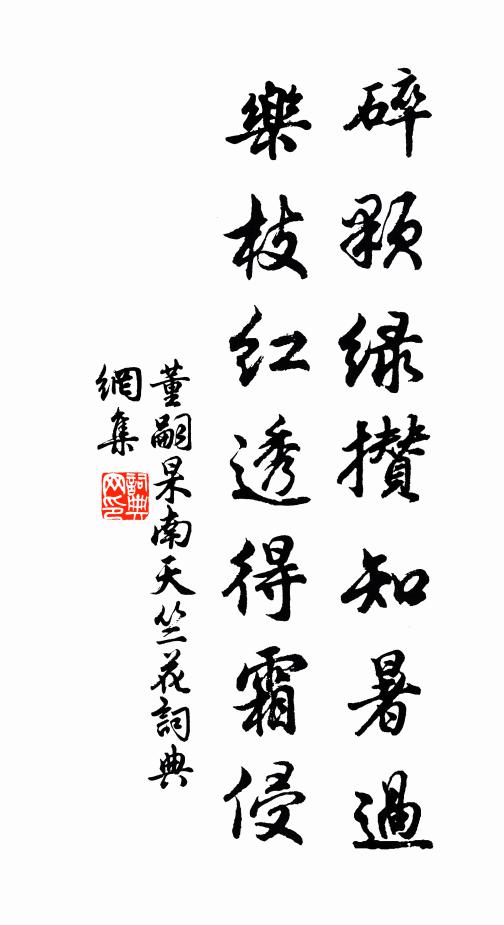 碎顆緑攅知暑過
樂枝紅透得霜侵
董嗣杲南天竺花詞典
網集
詞典
网印